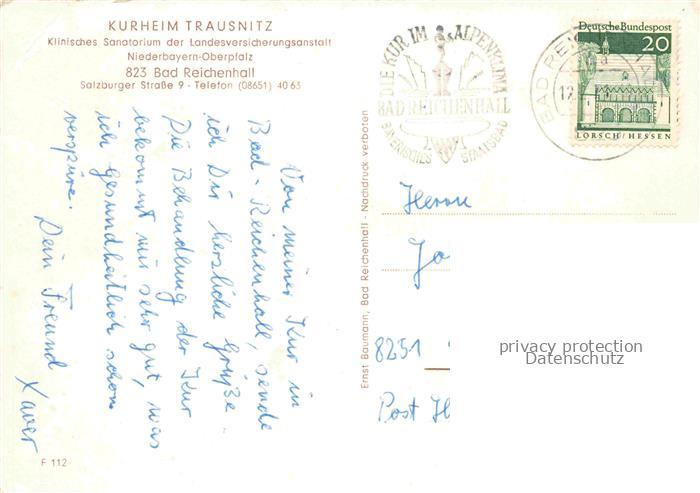 KURHEIM TRAUSNITZ
Klinisches Sanatorium der Landesversicherungsanstalt
Niederbayern-Oberpfalz
823 Bad Reichenhall
Salzburger Straße 9 - Telefon (08651) 40 63
Von meiner Kur in
Bad-Reichenhall, sende
ich Dir herzliche Grüße.
Die Behandlung der Kur
bekommt mir sehr gut, was
ich gesundheitlich schon
verspüre.
Dein Freund
Xaver
F 112
Ernst Baumann, Bad Reichenhall - Nachdruck verboten
DIE KUR IM ALPENKLIMA
BAD REICHENHALL
BAYERISCHES STAATSBAD
BAD REICHENHALL
Deutsche Bundespost
20
LORSCH/HESSEN
Herrn
Jo
8251
Post
privacy protection
Datenschutz